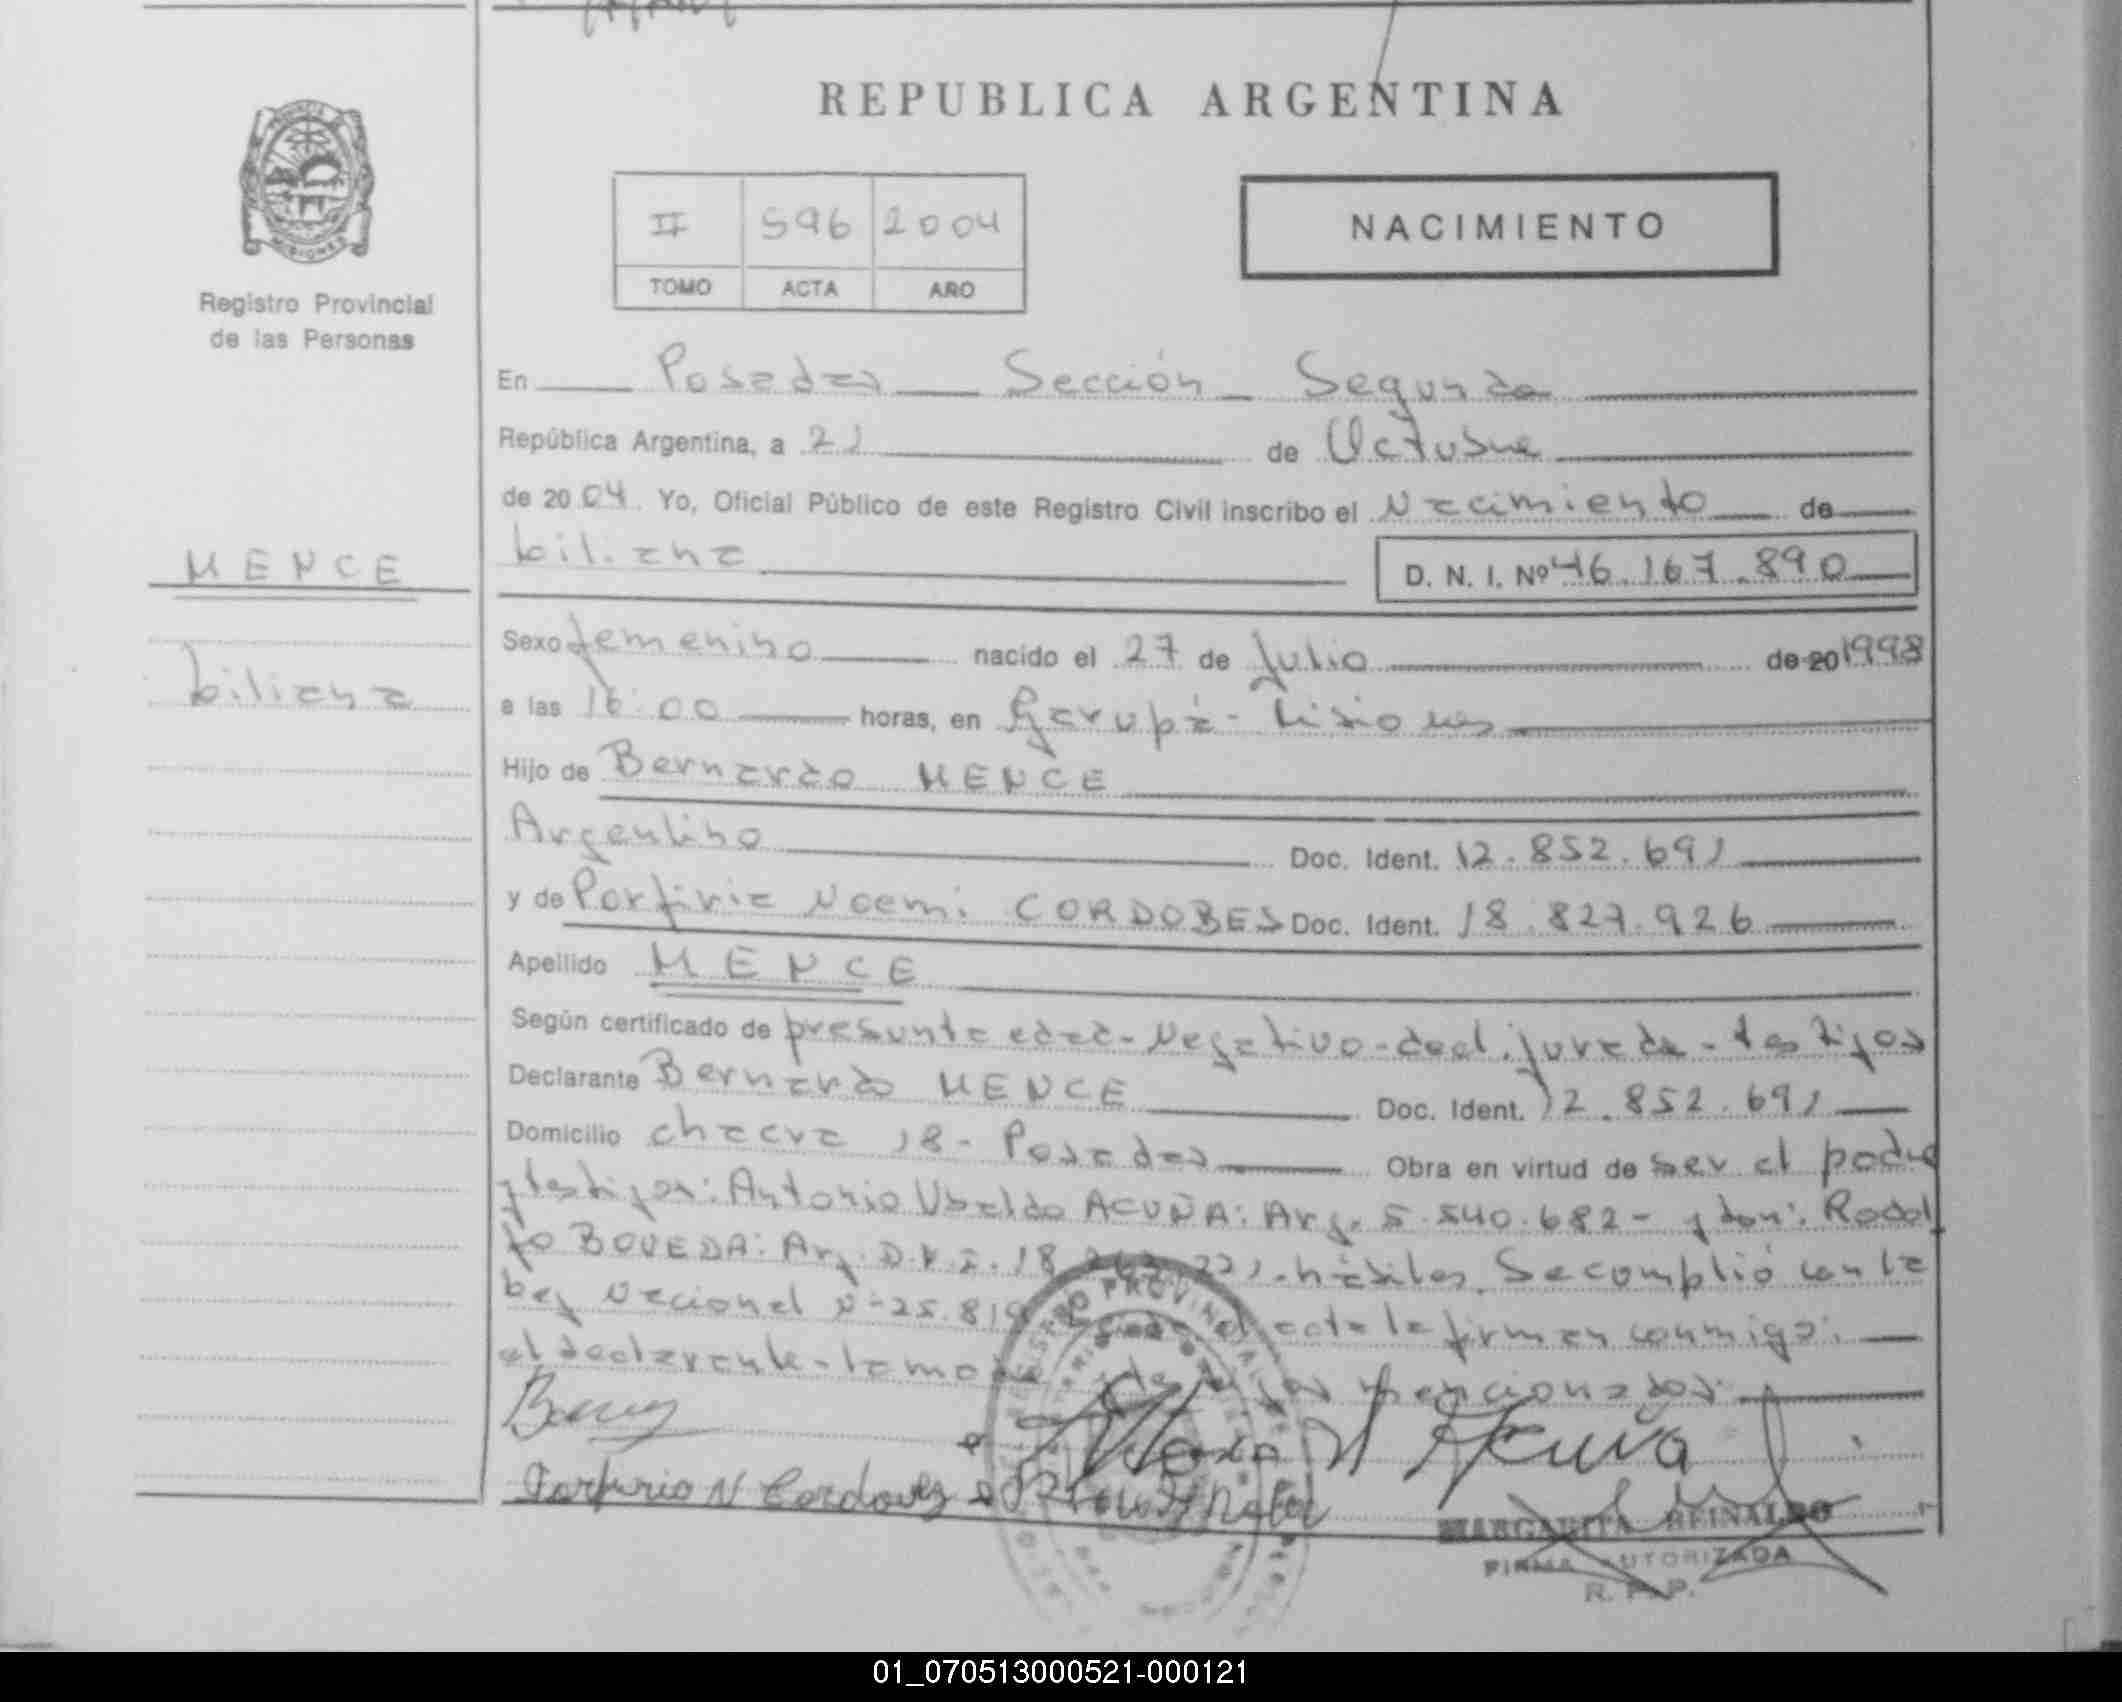 REPUBLICA ARGENTINA
II 596 2004
TOMO ACTA AÑO
NACIMIENTO
PROVINCIA
MISIONES
Registro Provincial
de las Personas
En Posadas Sección Segunda
República Argentina, a 21 de Octubre
de 2004. Yo, Oficial Público de este Registro Civil inscribo el Nacimiento de
Liliana
D. N. I. Nº 46.167.890
MENCE
Liliana
Sexo femenino nacido el 27 de Julio de 20 1998
a las 16:00 horas, en Garupá - Misiones
Hijo de Bernardo MENCE
Argentino Doc. Ident. 12.852.691
y de Porfiria Noemi CORDOBES Doc. Ident. 18.827.926
Apellido MENCE
Según certificado de presunta edad - Negativo - decl. jurada - testigos
Declarante Bernardo MENCE Doc. Ident. 12.852.691
Domicilio chacra 18 - Posadas Obra en virtud de ser el padre
y testigos: Antonio Ubaldo ACUÑA: Arg. 5.540.682 - y don: Rodol
fo BOVEDA: Arg. D.N.I. 18. 221. hábiles. Se complió con la
Ley Nacional Nº 25.819 acta la firman conmigo:
el declarante - la mencionados.
REGISTRO PROVINCIAL
Acuña
Porfirio N Cordovez
MARGARITA REINALDO
FIRMA AUTORIZADA
R. P. P.
01_070513000521-000121